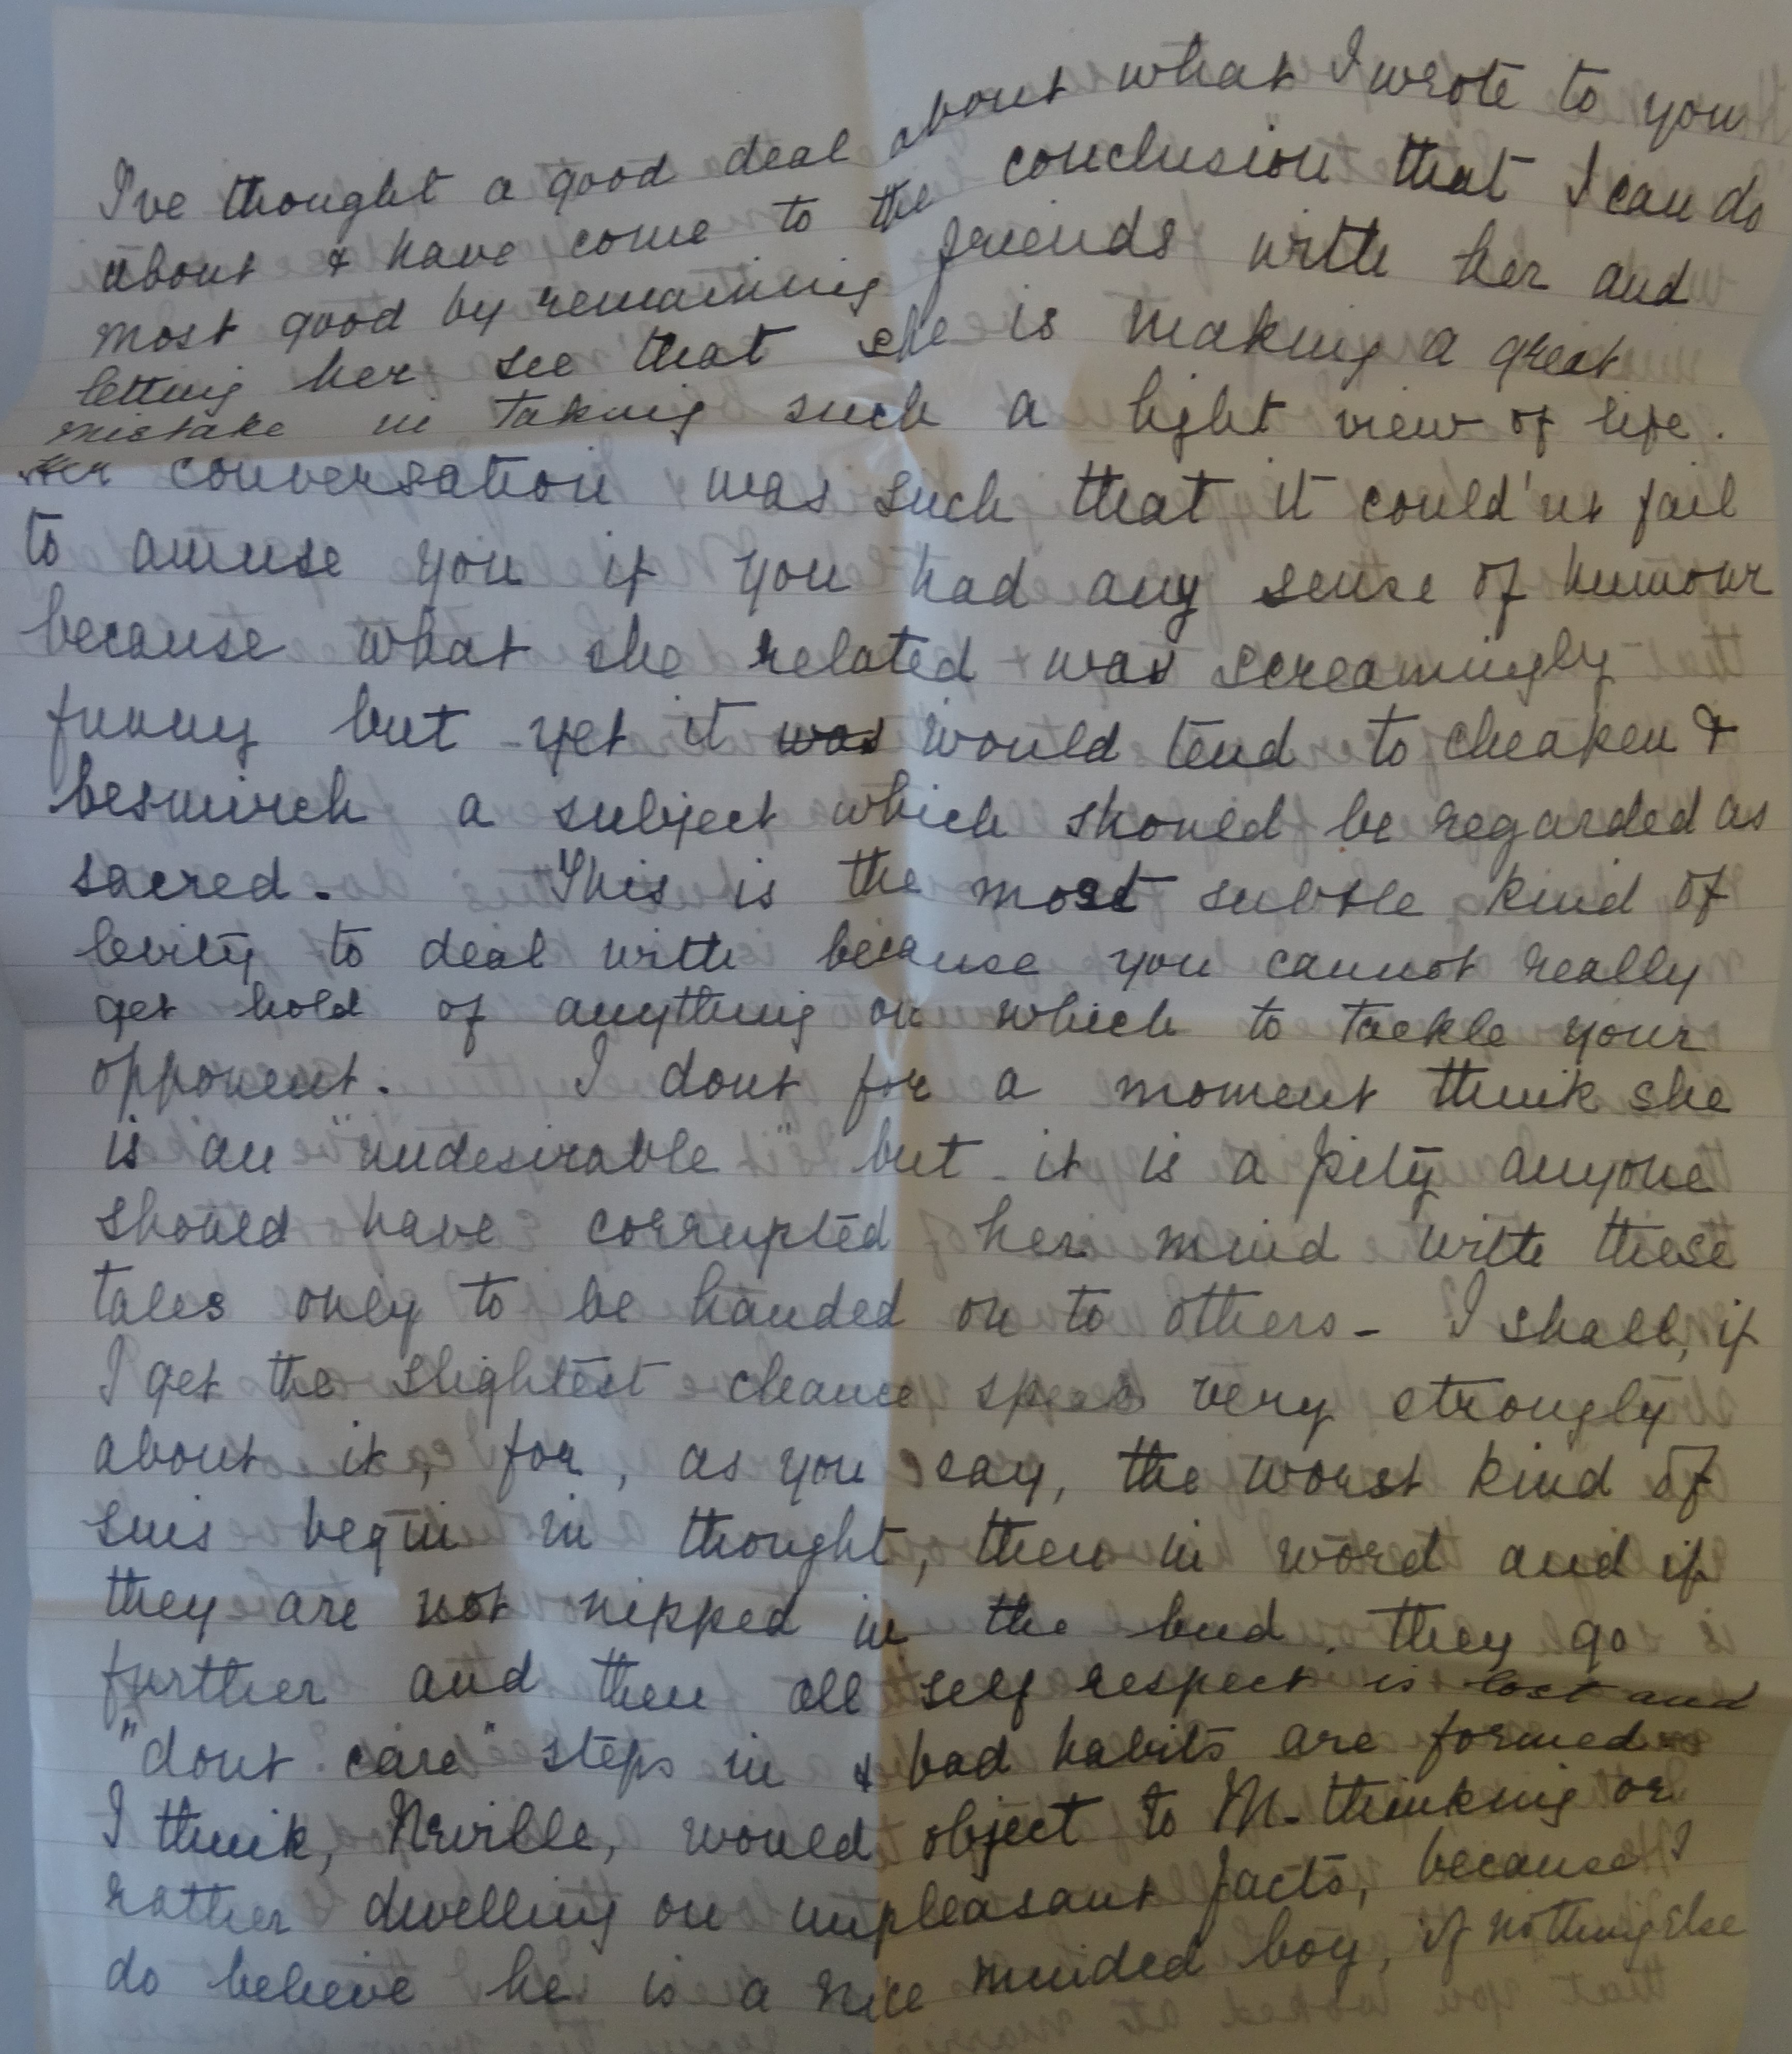 I've thought a good deal about what I wrote to you
about & have come to the conclusion that I can do
most good by remaining friends with her and
letting her see that she is making a great
mistake in taking such a light view of life.
Her conversation was such that it could'nt fail
to amuse you if you had any sense of humour
because what she related was screamingly
funny but yet it was would tend to cheapen &
besmirch a subject which should be regarded as
sacred. This is the most subtle kind of
levity to deal with because you cannot really
get hold of anything on which to tackle your
opponent. I dont for a moment think she
is an "undesirable" but it is a pity anyone
should have corrupted her mind with these
tales only to be handed on to others - I shall, if
I get the slightest chance speak very strongly
about it, for, as you say, the worst kind of
sins begin in thought, then in word and if
they are not nipped in the bud they go
further and then all self respect is lost and
"dont care" steps in & bad habits are formed
I think, Neville, would object to M. thinking or
rather dwelling on unpleasant facts, because I
do believe he is a nice minded boy, if nothing else